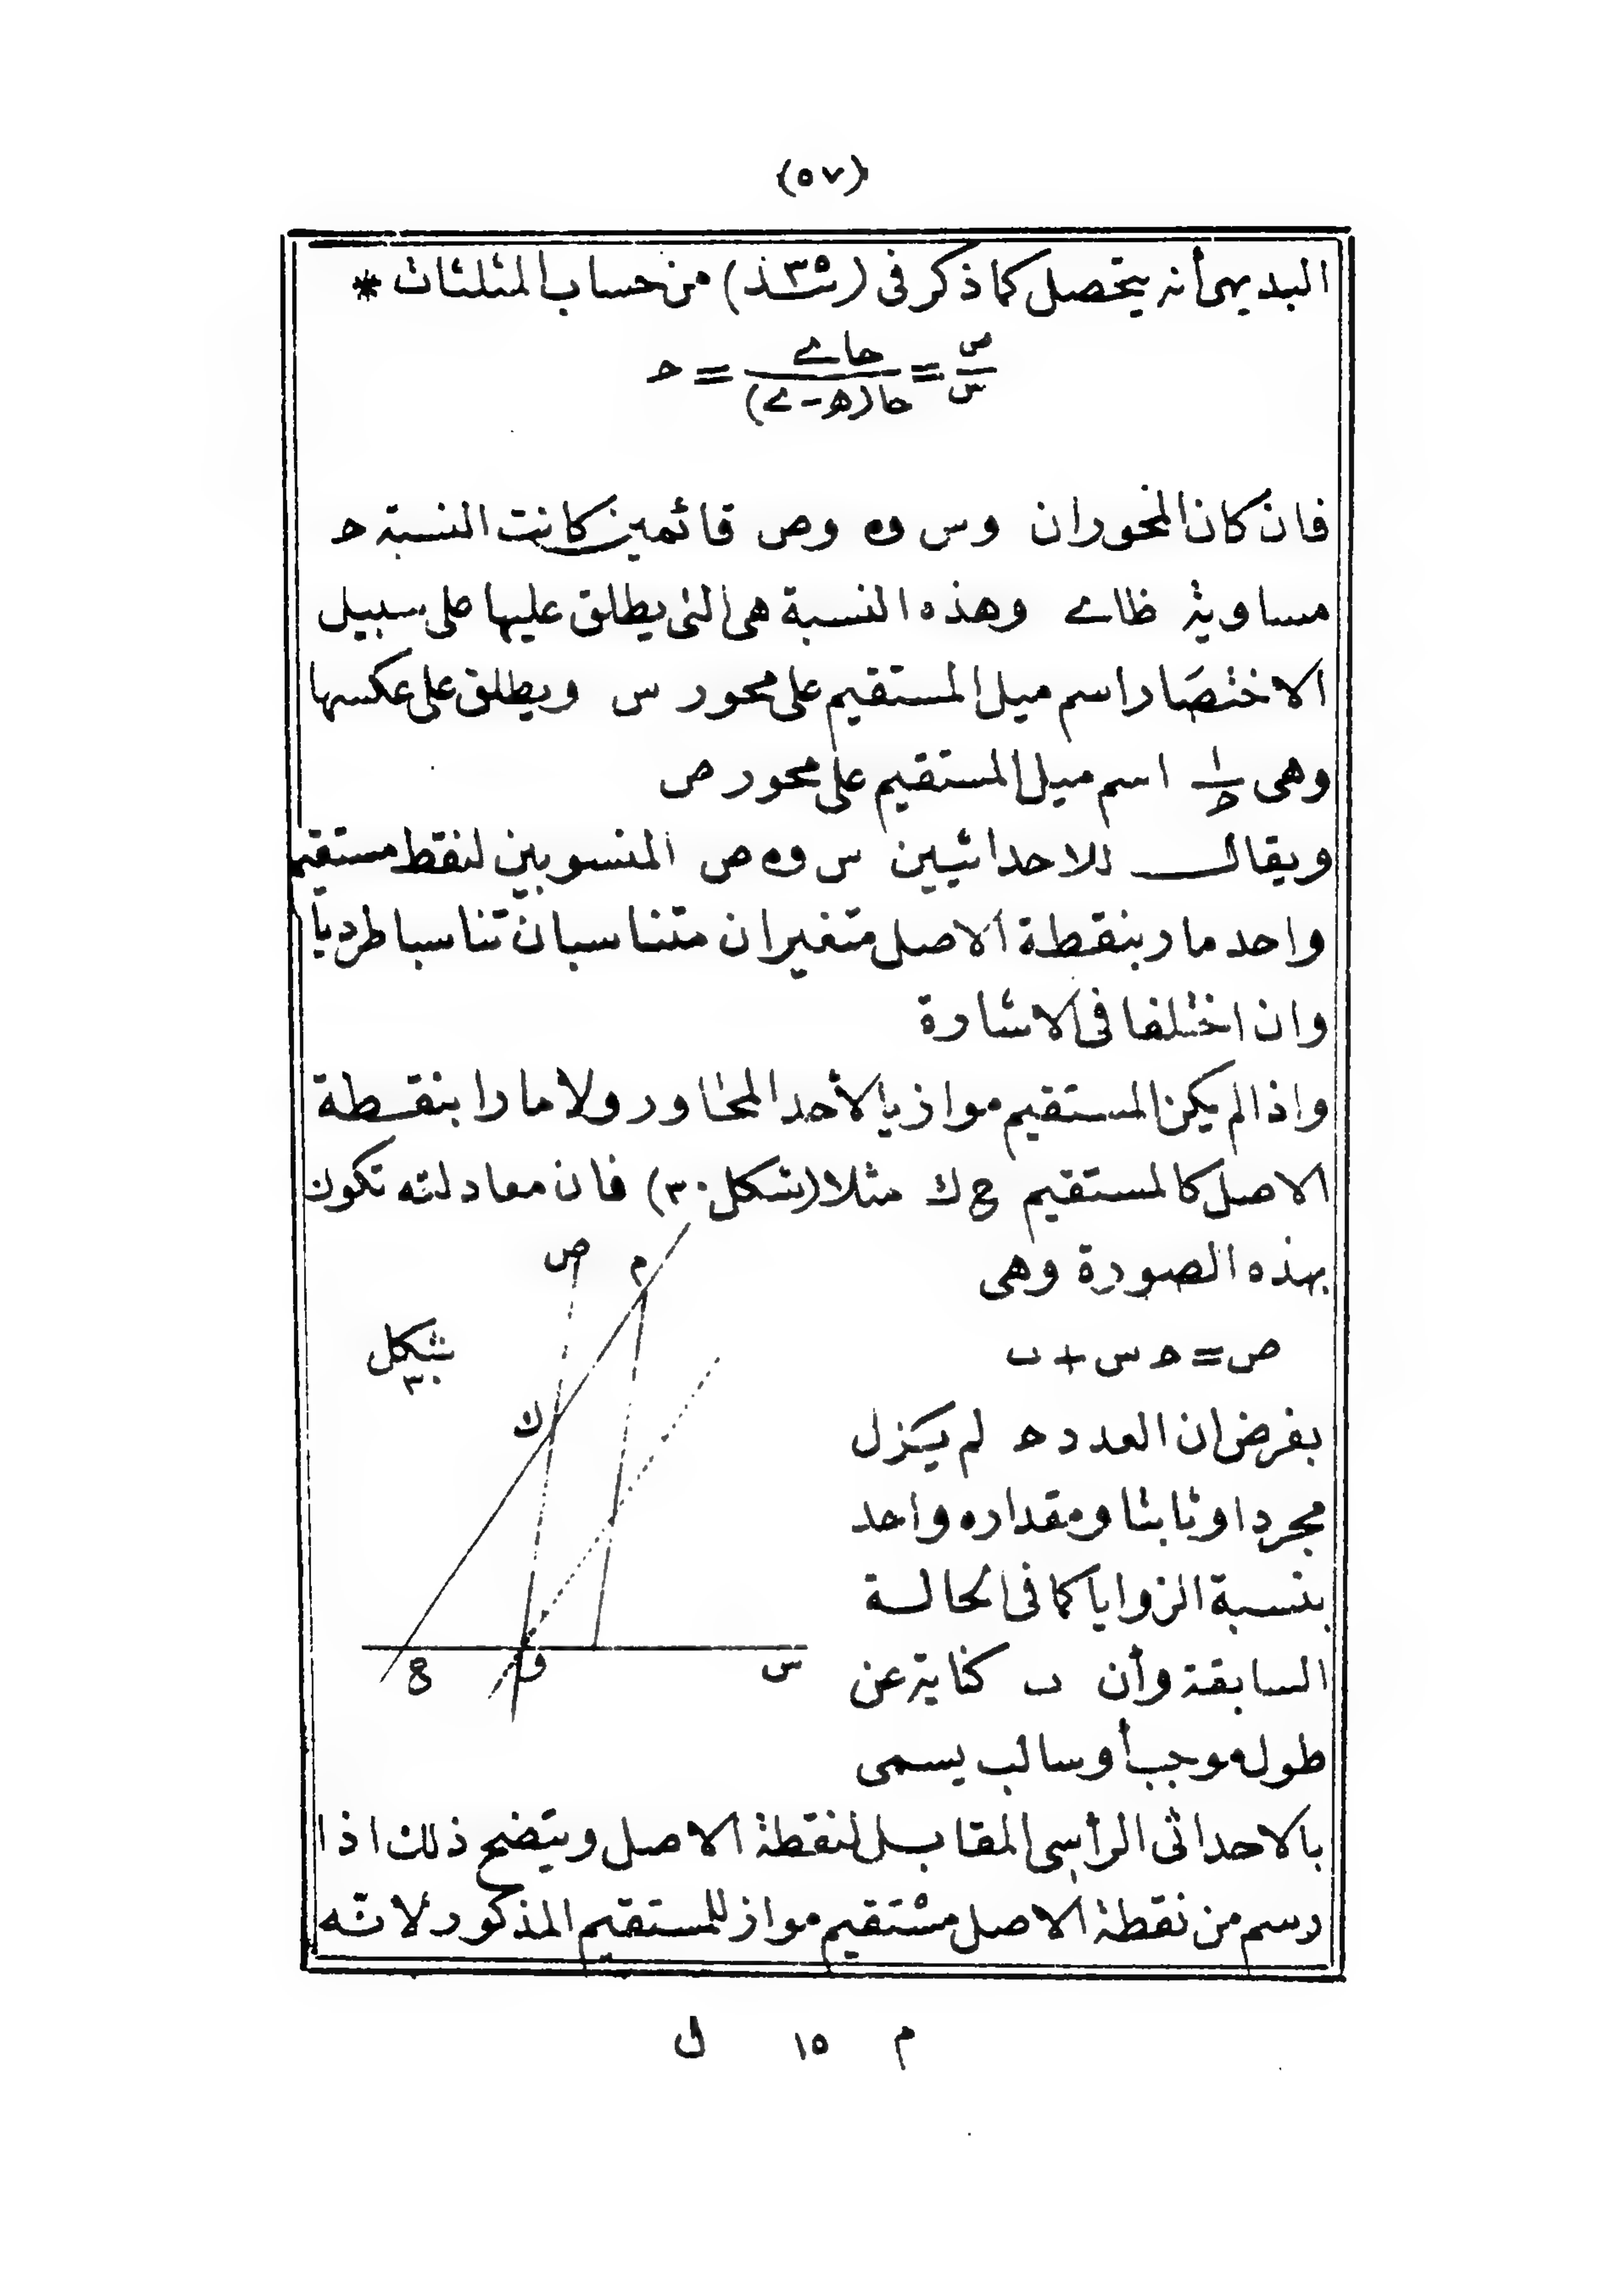 (٥٧)
البديهى أنه يتحصل كما ذكر فى ( ) من حساب المثلثات *
ص/س = حاى/حا(ھ-ى) = حـ
فان كان المحوران وس و٥ وص قائمين كانت النسبة حـ
مساوية ظاى وهذه النسبة هى التى يطلق عليها على سبيل
الاختصار اسم ميل المستقيم على محور س ويطلق على عكسها
وهى ١/حـ اسم ميل المستقيم على محور ص
ويقال للاحداثيين س و٥ ص المنسوبين لنقط مستقيم
واحد مار بنقطة الاصل متغيران متناسبان تناسبا طرديا
وان اختلفا فى الاشارة
واذا لم يكن المستقيم موازيا لأحد المحاور ولا مارا بنقطة
الاصل كالمستقيم ع ك مثلا (شكل ٣٠) فان معادلته تكون
بهذه الصورة وهى
ص = حـ س + ب
بفرض ان العدد حـ لم يزل
مجردا وثابتا ومقداره واحد
بنسبة الزوايا كما فى الحالة
السابقة وأن ب كناية عن
طول موجب أو سالب يسمى
بالاحداثى الرأسى المقابل لنقطة الاصل ويتضح ذلك اذا
رسم من نقطة الاصل مستقيم مواز للمستقيم المذكور لانه
ص م
شكل
٣٠
ك
ع و س
م ١٥ ل